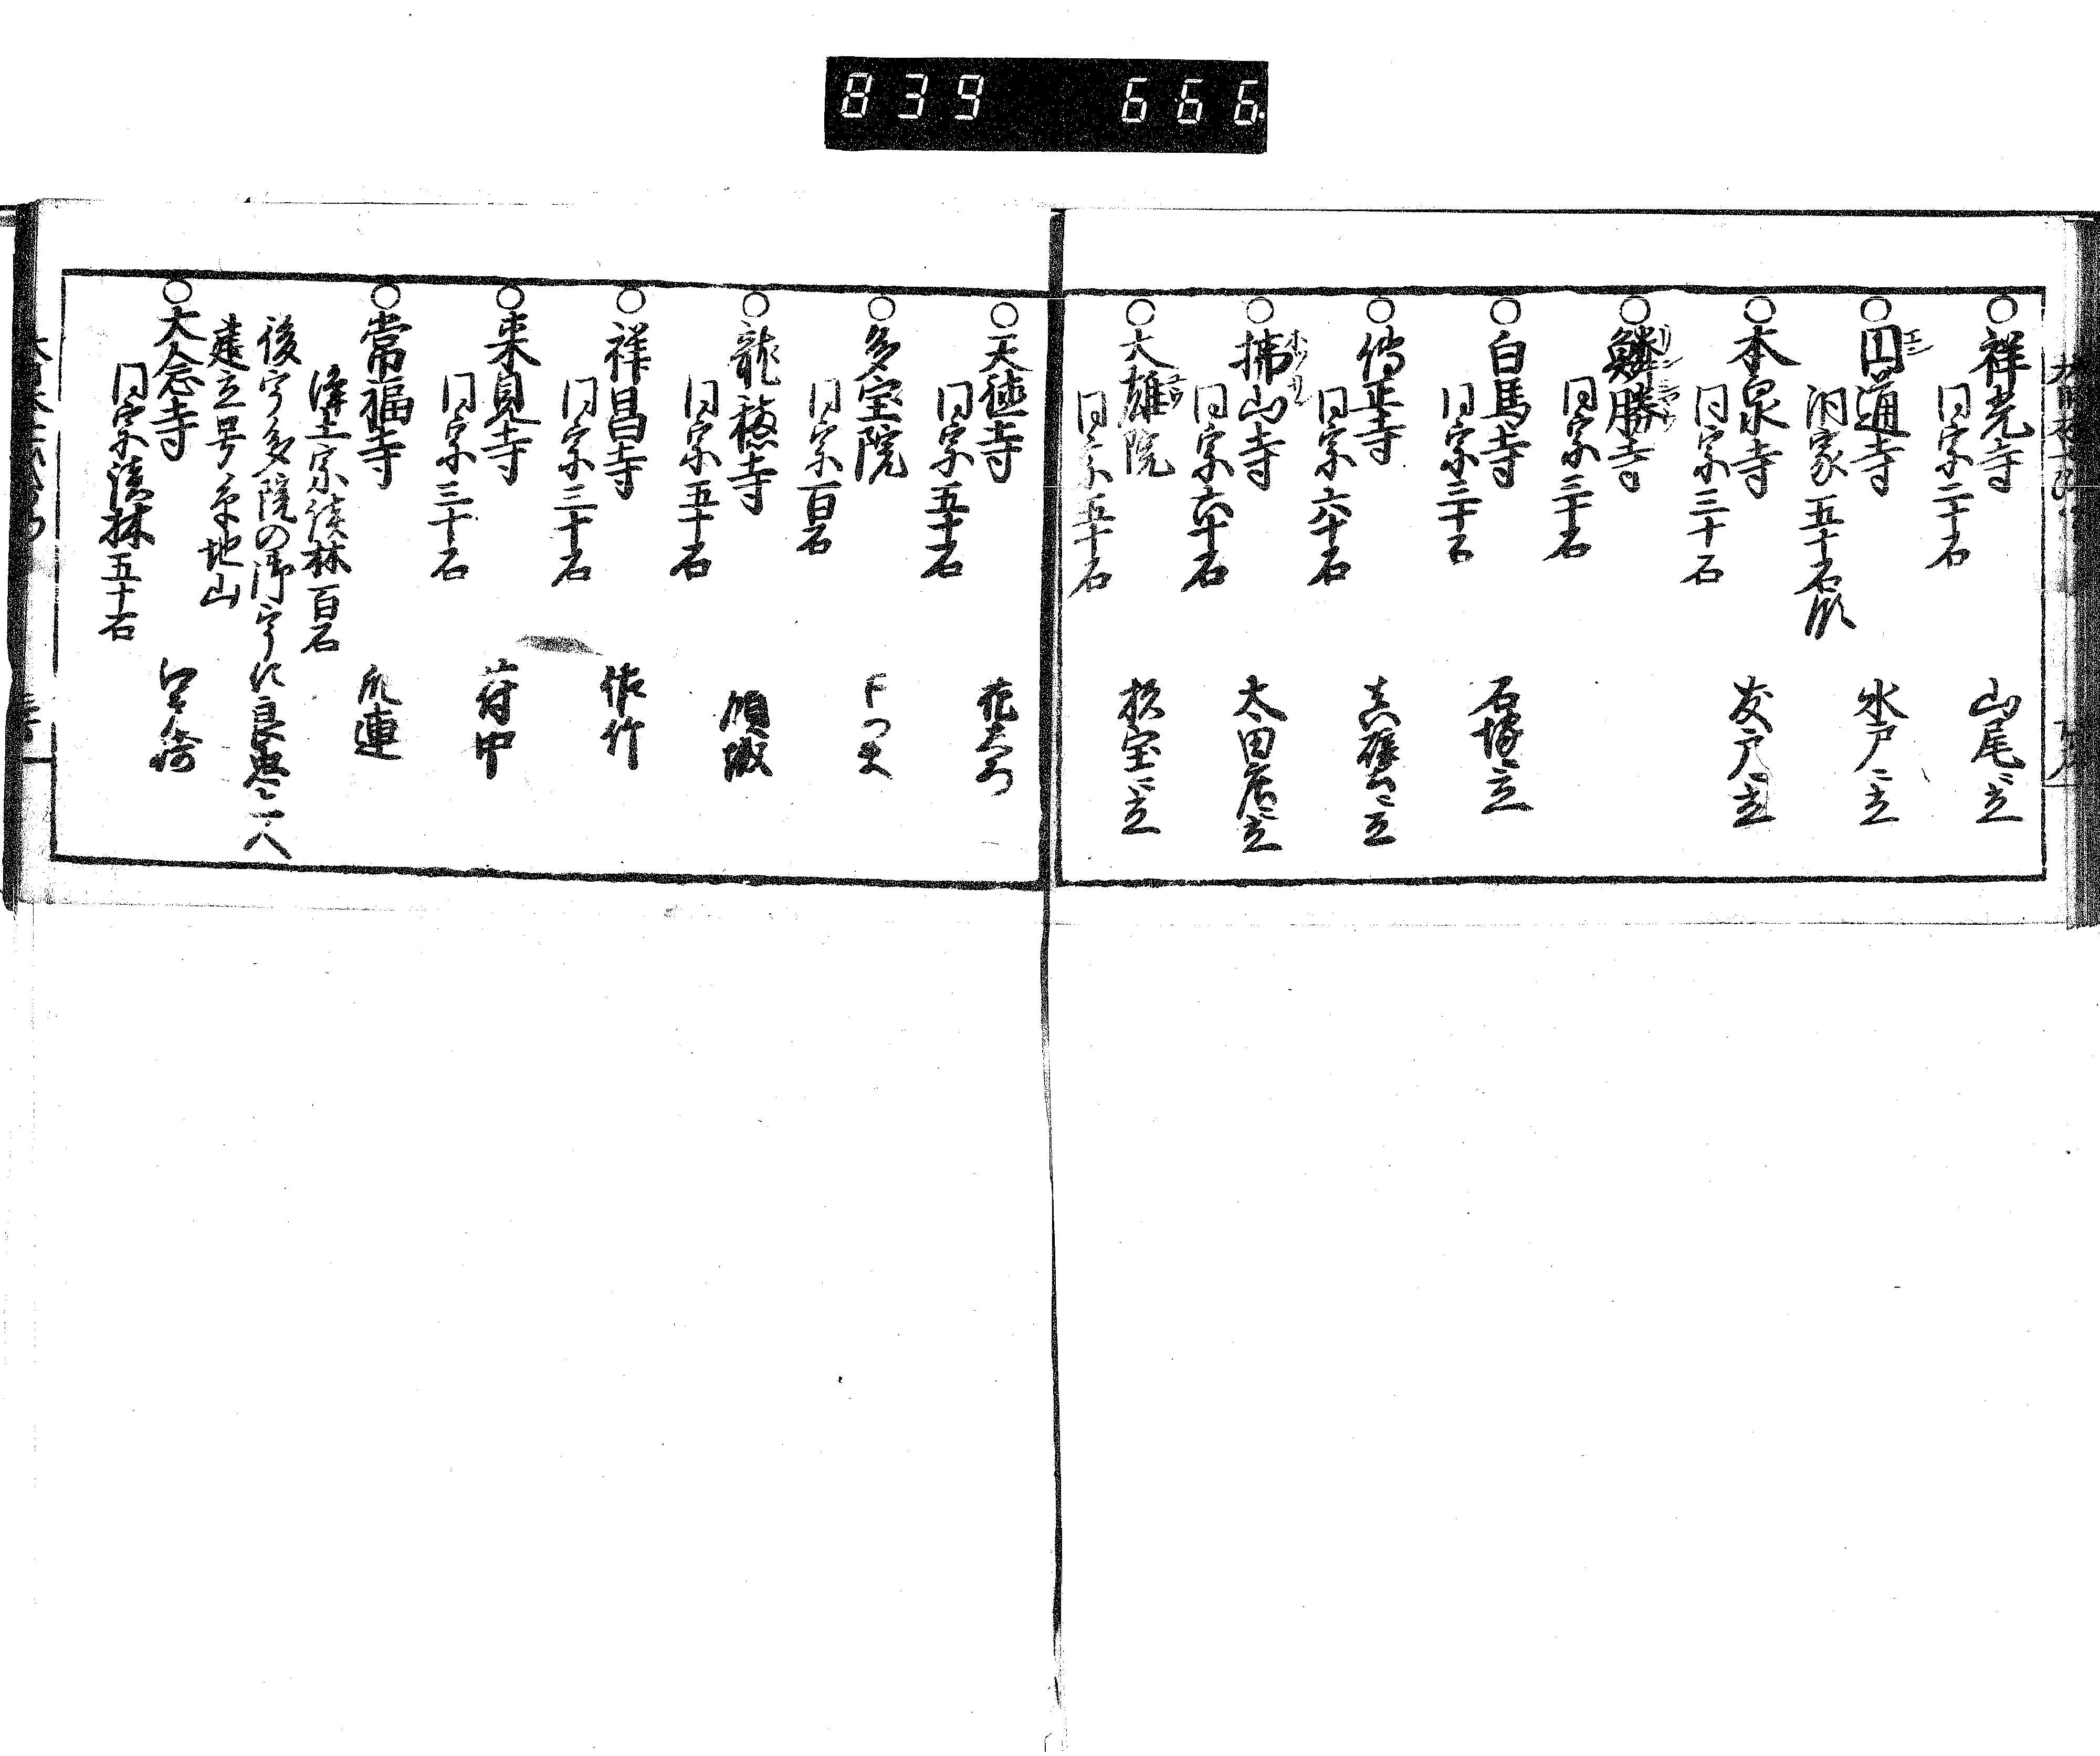 839 666
○祥光寺 山尾ニ立
同宗二十石
○円通寺 水戸ニ立
洞家五十石
○本泉寺 友戸ニ立
同宗三十石
○鱗勝寺
同宗三十石
○白馬寺 石塚ニ立
同宗三十石
○傳正寺 真壁ニ立
同宗六十石
○拂山寺 太田ニ立
同宗六十石
○大雄院
同宗五十石
○天徳寺
同宗五十石
○多宝院 下つま
同宗百石
○龍穏寺
同宗五十石
○祥昌寺 佐竹
同宗三十石
○来見寺 府中
同宗三十石
○常福寺 瓜連
浄土宗談林百石
後宇多院の御宇に良忠上人
建立号
○大念寺 江戸崎
同宗談林五十石